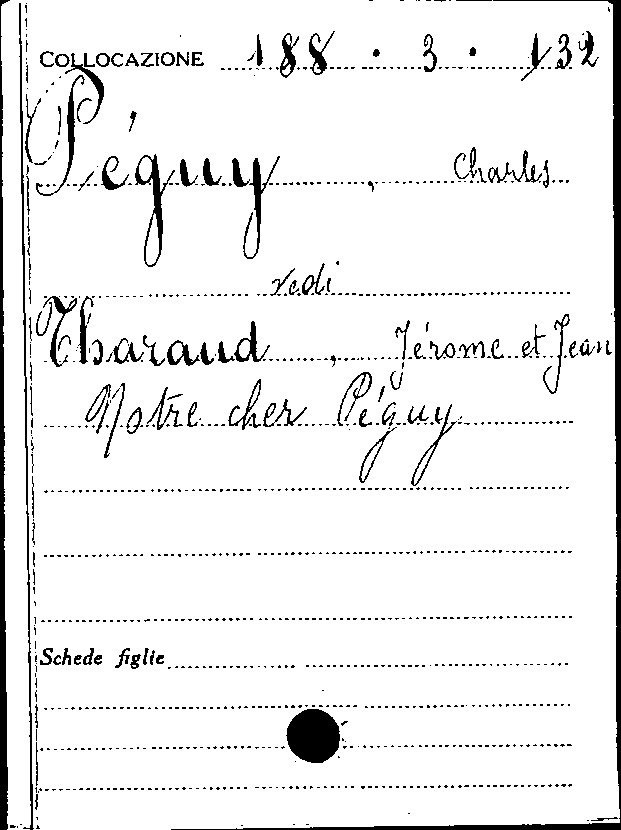 COLLOCAZIONE 188 · 3 · 132
Péguy, Charles
vedi
Tharaud, Jérome et Jean
Notre cher Péguy
Schede figlie